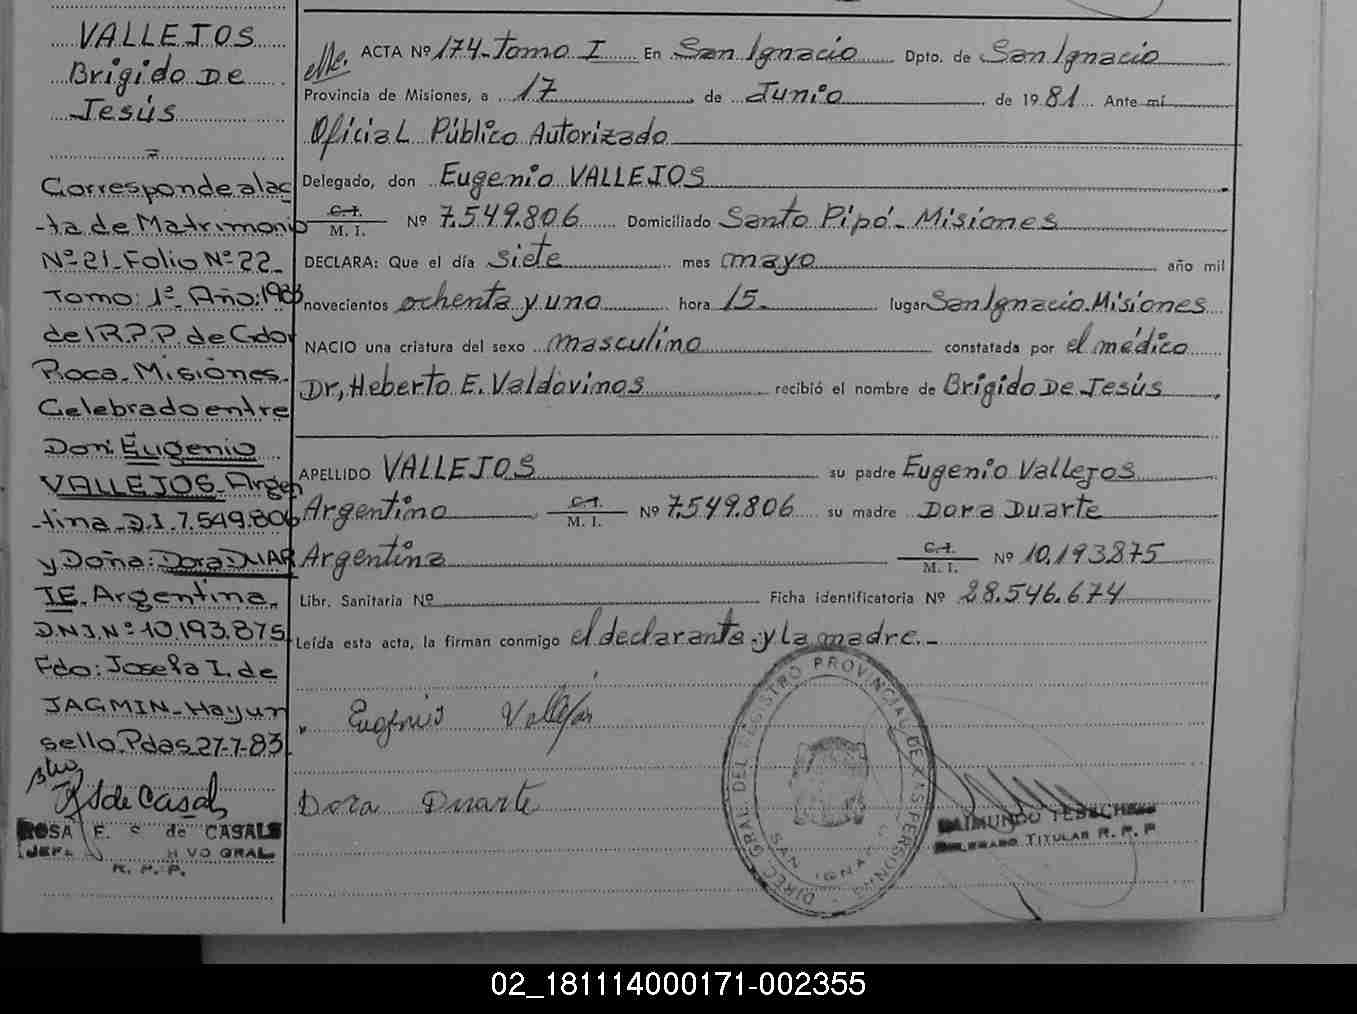 VALLEJOS
Brigido De
Jesús
=
Corresponde al ac
-ta de Matrimonio
Nº 21_Folio Nº 22_
Tomo: 1º Año: 1983
del R.P.P. de Gdor
Roca_Misiones.
Celebrado entre
Don: Eugenio
VALLEJOS_Argen
-tina_D.I. 7.549.806
y Doña: Dora DUAR
TE. Argentina.
D.N.I. Nº 10.193.875
Fdo: Josefa I. de
JAGMIN_Hay un
sello. Pdas 27-7-83
ROSA E. S. de CASALS
R. P. P.
ACTA Nº 174-Tomo I En San Ignacio Dpto. de San Ignacio
Provincia de Misiones, a 17 de Junio de 1981 Ante mí
Oficial Público Autorizado
Delegado, don Eugenio VALLEJOS
C.I.
M. I. Nº 7.549.806 Domiciliado Santo Pipó_Misiones
DECLARA: Que el día siete mes mayo año mil
novecientos ochenta y uno hora 15. lugar San Ignacio. Misiones
NACIO una criatura del sexo masculino constatada por el médico
Dr, Heberto E. Valdovinos recibió el nombre de Brigido De Jesús
APELLIDO VALLEJOS su padre Eugenio Vallejos
Argentino C.I. M. I. Nº 7.549.806 su madre Dora Duarte
Argentina C.I. M. I. Nº 10.193.875
Libr. Sanitaria Nº Ficha identificatoria Nº 28.546.674
Leída esta acta, la firman conmigo el declarante y La madre._
Eugenio Vallejos
Dora Duarte
DIREC. GRAL. DEL REGISTRO PROVINCIAL DE LAS PERSONAS
SAN IGNACIO
RAIMUNDO
DELEGADO TITULAR R. P. P.
02_181114000171-002355